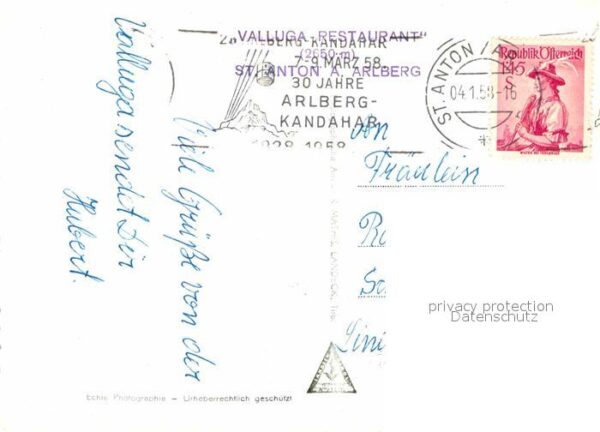 "VALLUGA-RESTAURANT"
(2650 m)
ST. ANTON A. ARLBERG
ARLBERG-KANDAHAR
7-9 MÄRZ 58
30 JAHRE
ARLBERG-
KANDAHAR
1928-1958
ST. ANTON
04.1.58-16
Republik Österreich
1.45
S
Viele Grüße von der
Valluga sendet Dir
Hubert.
An
Fräulein
privacy protection
Datenschutz
Echte Photographie – Urheberrechtlich geschützt